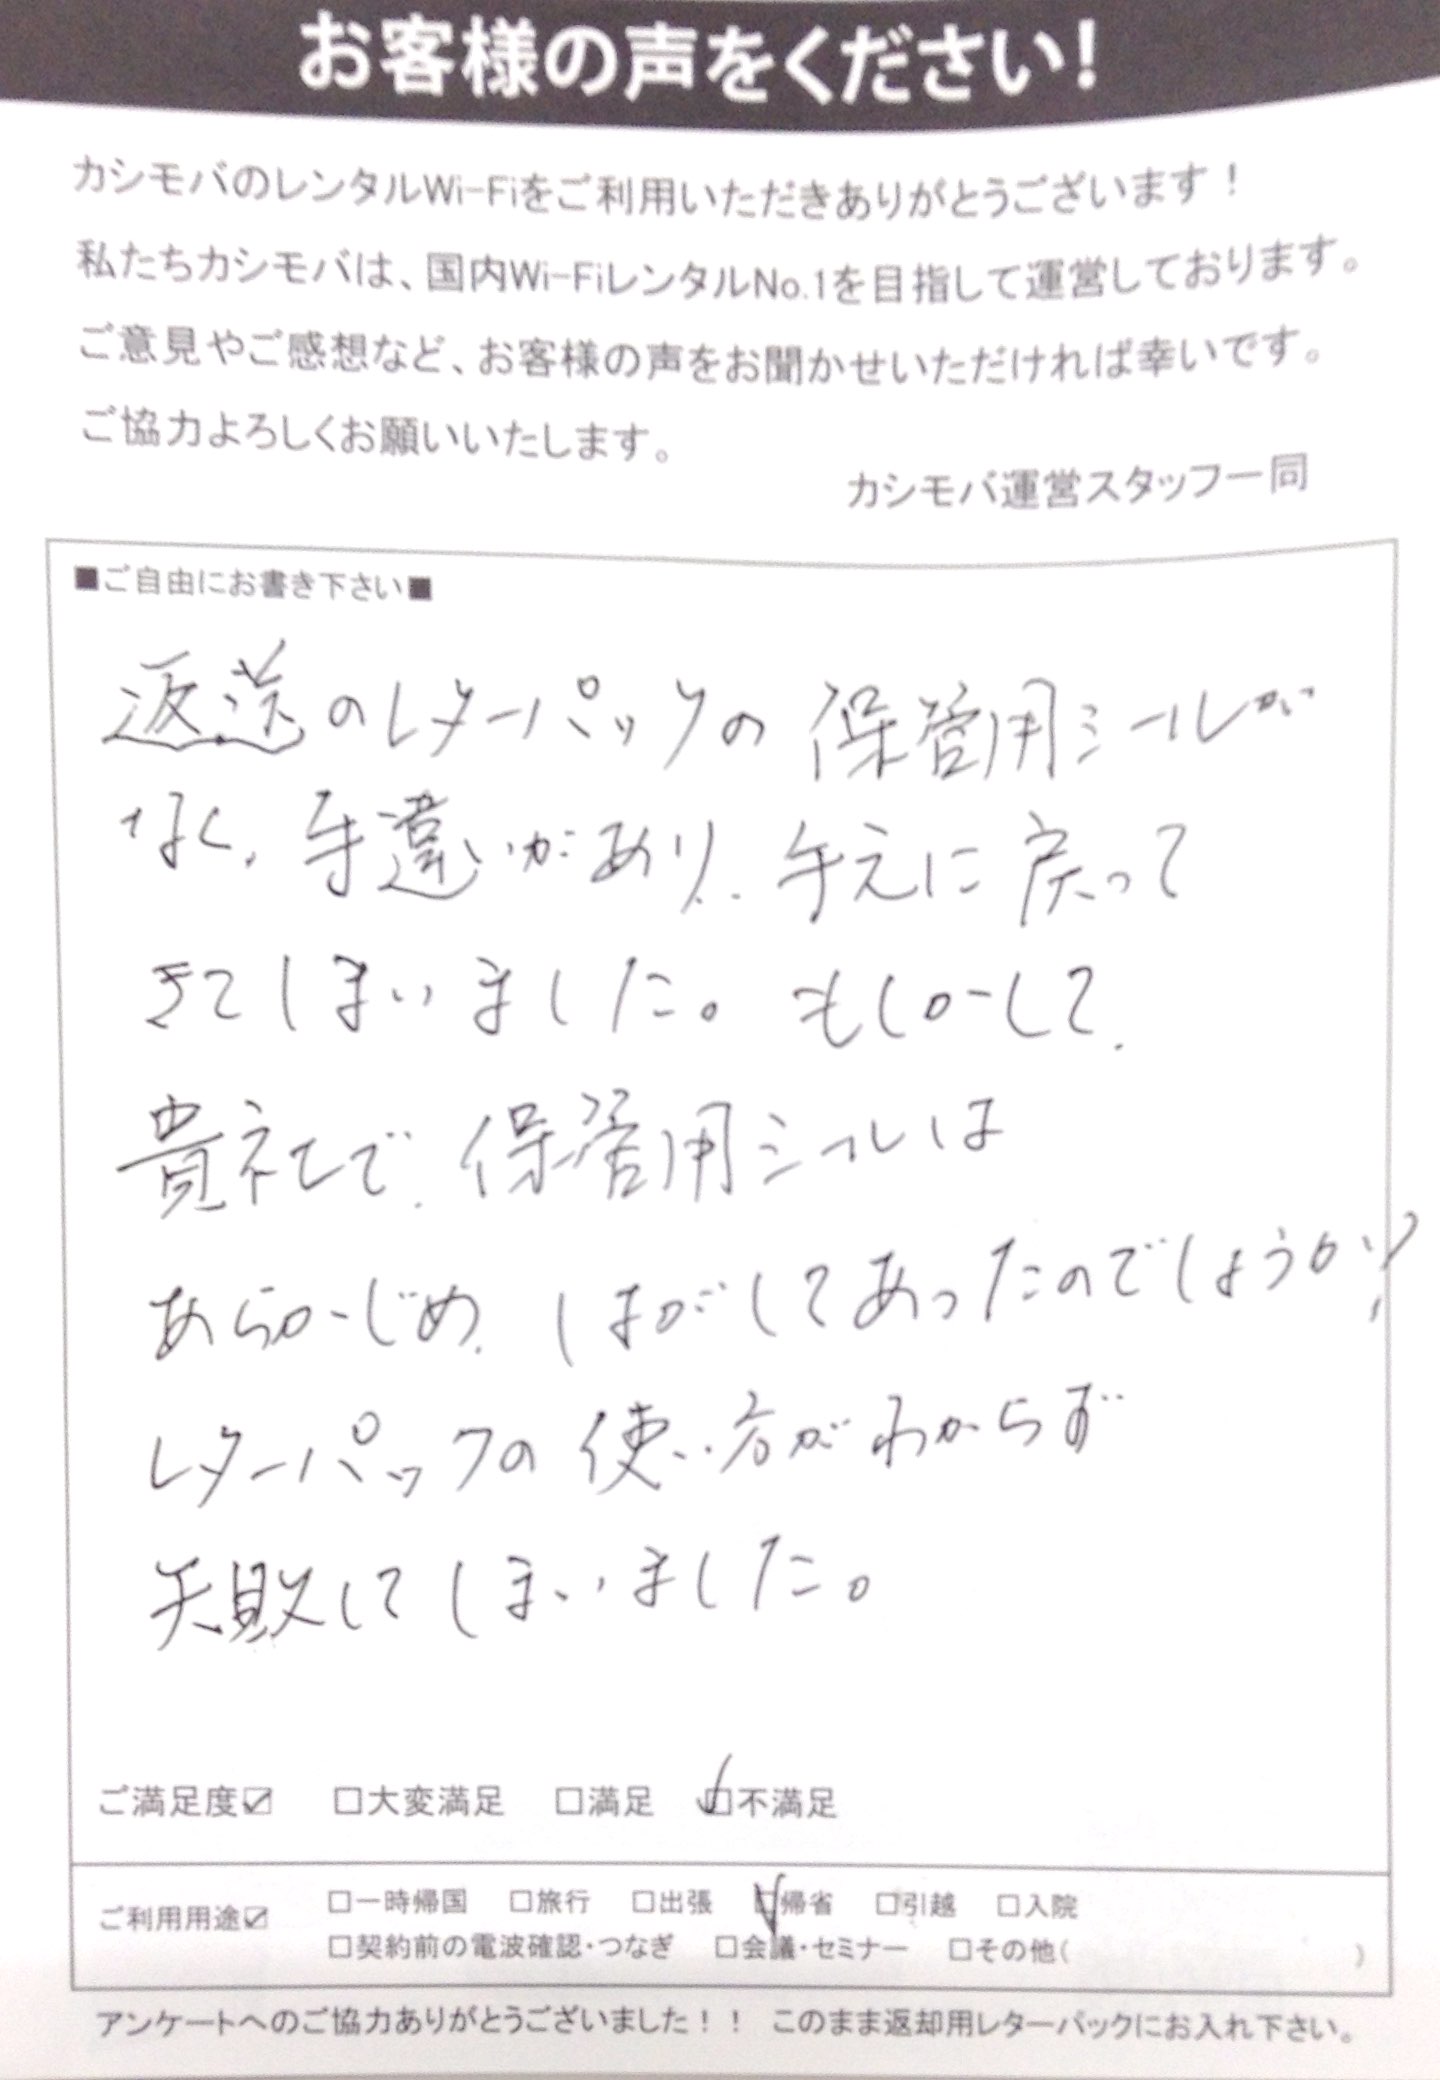 お客様の声をください!
カシモバのレンタルWi-Fiをご利用いただきありがとうございます!
私たちカシモバは、国内Wi-FiレンタルNo.1を目指して運営しております。
ご意見やご感想など、お客様の声をお聞かせいただければ幸いです。
ご協力よろしくお願いいたします。
カシモバ運営スタッフ一同
■ご自由にお書き下さい■
返送のレターパックの保管用シールが
なく、手違いがあり、手元に戻って
きてしまいました。もしかして、
貴社で、保管用シールは
あらかじめ、はがしてあったのでしょうか?
レターパックの使い方がわからず
失敗してしまいました。
ご満足度☑ □大変満足 □満足 ☑不満足
ご利用用途☑ □一時帰国 □旅行 □出張 ☑帰省 □引越 □入院
□契約前の電波確認・つなぎ □会議・セミナー □その他( )
アンケートへのご協力ありがとうございました!! このまま返却用レターパックにお入れ下さい。